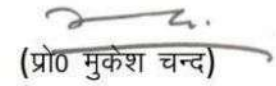 (प्रो0 मुकेश चन्द)